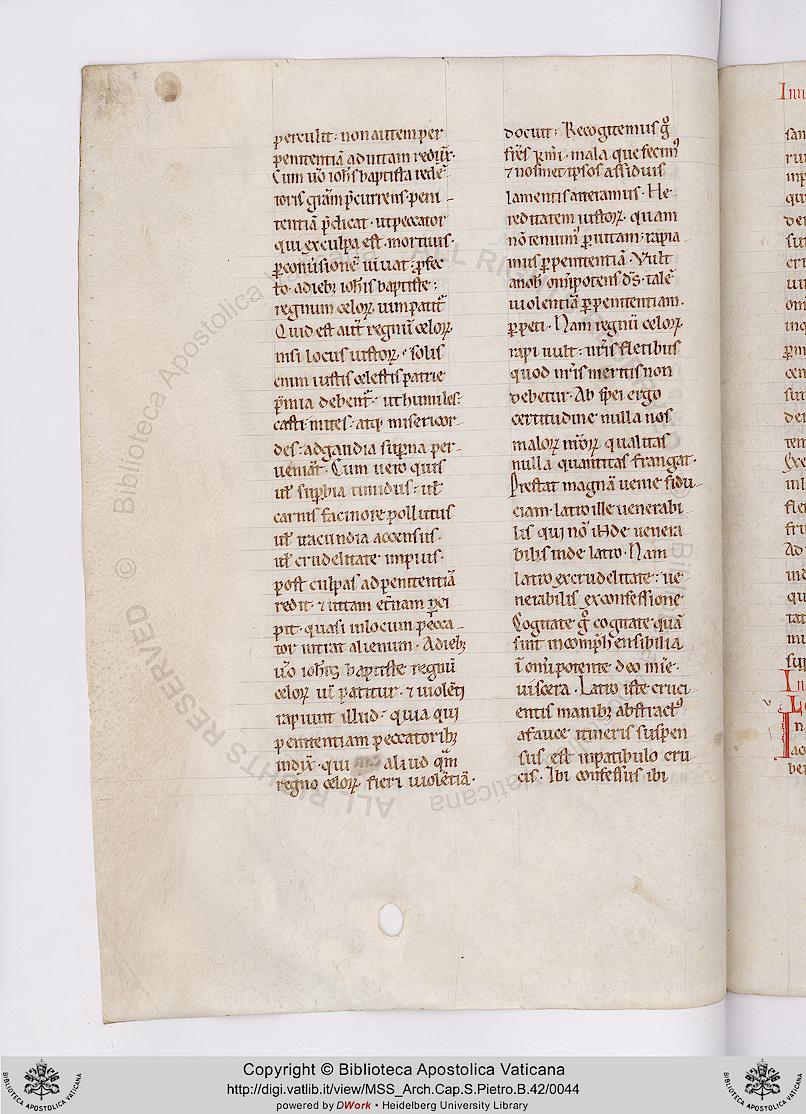 perculit: non autem per
penitentiā ad uitam redūxit.
Cum u͛o ioh̄s baptista redē
toris grām p̄currens peni-
tentiā p̄dicat. ut peccator
qui ex culpa est mortuus.
ꝑ conu͛sionē uiuat: ꝓfec
to. a dieb; ioh̄is baptiste:
regnum celoꝝ uim patit̄.
Quid est aut̄ regnū celoꝝ
nisi locus iustoꝝ. Solis
enim iustis celestis patrie
p̄mia debent̄. ut humiles:
casti. mites. atq; misericor
des: ad gaudia sup̄na per-
ueniāt. Cum uero quis
uł sup͛bia tumidus: uł
carnis facinore pollutus
uł iracundia accensus.
uł crudelitate impius.
post culpas ad penitentiā
redit. ⁊ uitam et͛nam p͛ci
pit. quasi in locum pecca
tor intrat alienum. A dieb;
u͛o ioh̄is baptiste regnū
celoꝝ uī patitur. ⁊ uiolēti
rapiunt illud. quia qui
penitentiam peccatorib;
indix̄. qui aliud q̄m
regno celoꝝ fieri uiolētiā.
docuit: Recogitemus gͦ
fr̄es kr̄mi. mala que fecimꝰ
⁊ nosmet ipsos assiduis
lamentis atteramus. He
reditatem iustoꝝ. quam
nō tenuimꝰ ꝑ uitam: rapia
mus ꝑ penitentiam. Vult
a nob̄ om̄ipotens d̄s. talē
uiolentiā ꝑ penitentiam.
ꝑpeti. Nam regnū celoꝝ
rapi uult: nr̄is fletibus
quod nr̄is meritis non
debetur. Ab spei ergo
certitudine nulla nos
maloꝝ nr̄oꝝ qualitas
nulla quantitas frangat.
Prestat magnā uenie fidu-
ciam. latro ille uenerabi-
lis qui nō inde uenera
bilis unde latro. Nam
latro ex crudelitate: ue-
nerabilis ex confessione
Cogitate gͦ cogitate quā
sint incomp̄hensibilia
ī om̄ipotente deo mīe.
uiscera. Latro iste cruci
entis manib; abstractꝰ
a fauce itineris suspen
sus est in patibulo cru
cis. Ibi confessus ibi
Copyright © Biblioteca Apostolica Vaticana
http://digi.vatlib.it/view/MSS_Arch.Cap.S.Pietro.B.42/0044
powered by DWork • Heidelberg University Library